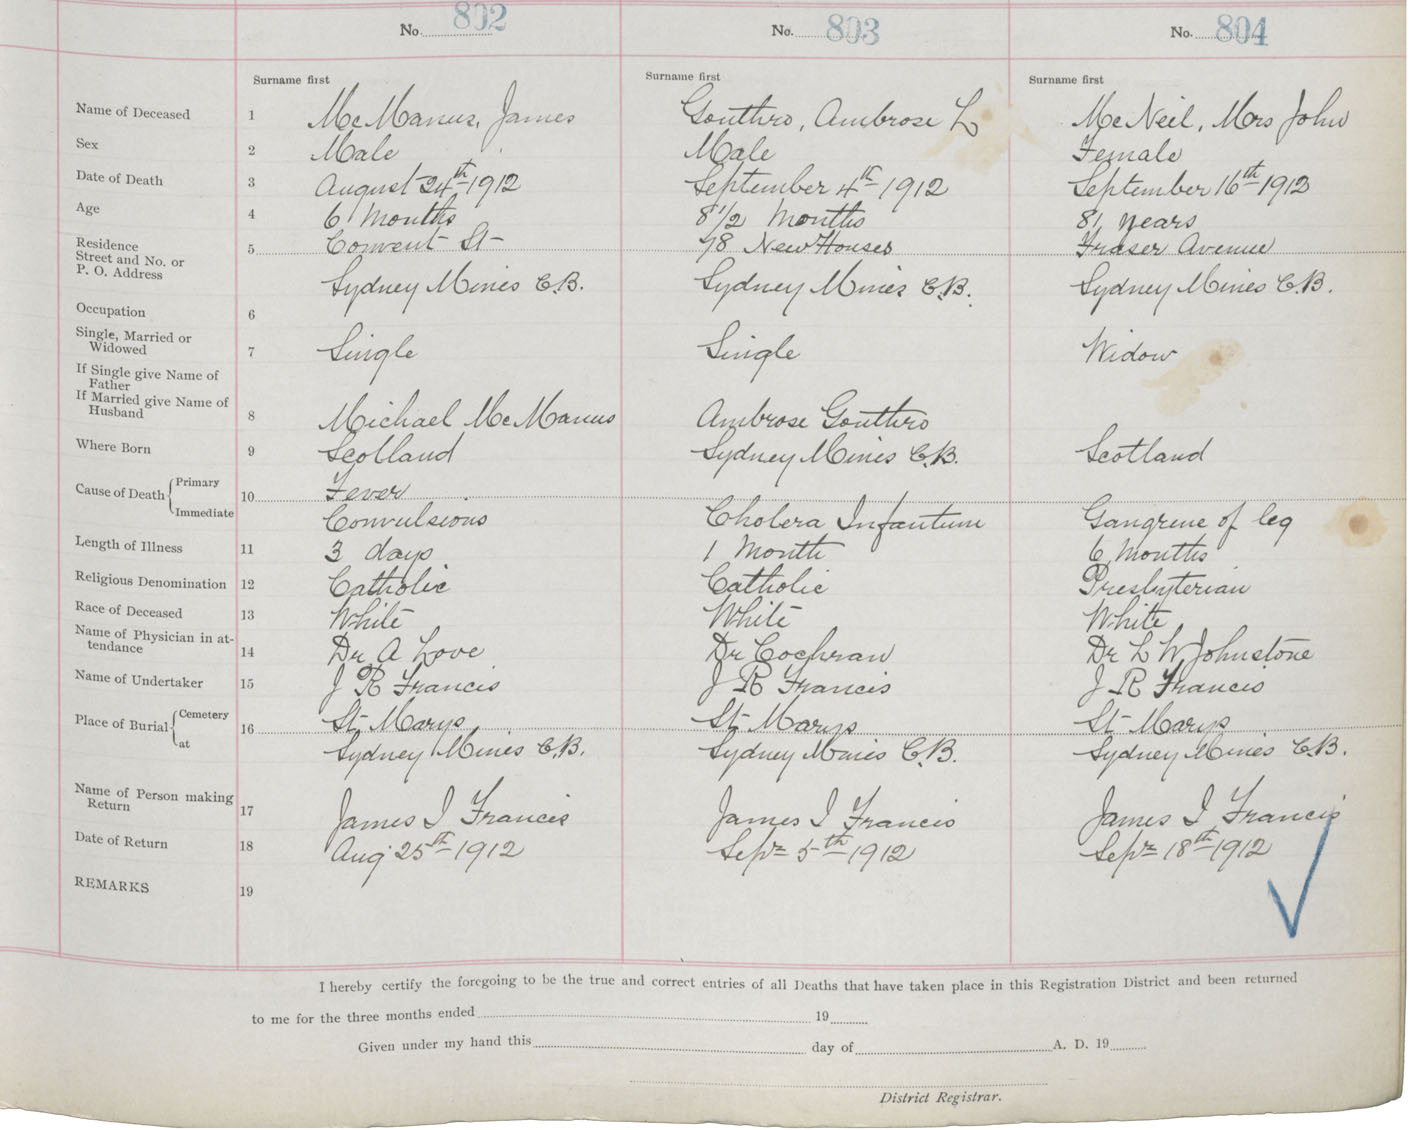 No. 802 No. 803 No. 804
Surname first Surname first Surname first
Name of Deceased 1 McManus, James Gouthro, Ambrose L McNeil, Mrs John
Sex 2 Male Male Female
Date of Death 3 August 24th 1912 September 4th 1912 September 16th 1912
Age 4 6 Months 8 1/2 Months 81 years
Residence
Street and No. or 5 Convent St 78 New Houses Fraser Avenue
P. O. Address Sydney Mines C.B. Sydney Mines C.B. Sydney Mines C.B.
Occupation 6
Single, Married or
Widowed 7 Single Single Widow
If Single give Name of
Father
If Married give Name of
Husband 8 Michael McManus Ambrose Gouthro
Where Born 9 Scotland Sydney Mines C.B. Scotland
Cause of Death { Primary 10 Fever
Immediate Convulsions Cholera Infantum Gangrene of leg
Length of Illness 11 3 days 1 Month 6 Months
Religious Denomination 12 Catholic Catholic Presbyterian
Race of Deceased 13 White White White
Name of Physician in at-
tendance 14 Dr A Love Dr Cochran Dr L W Johnstone
Name of Undertaker 15 J R Francis J R Francis J R Francis
Place of Burial { Cemetery 16 St Marys St Marys St Marys
at Sydney Mines C.B. Sydney Mines C.B. Sydney Mines C.B.
Name of Person making
Return 17 James I Francis James I Francis James I Francis
Date of Return 18 Aug 25th 1912 Sepr 5th 1912 Sepr 18th 1912
REMARKS 19
I hereby certify the foregoing to be the true and correct entries of all Deaths that have taken place in this Registration District and been returned
to me for the three months ended 19
Given under my hand this day of A. D. 19
District Registrar.